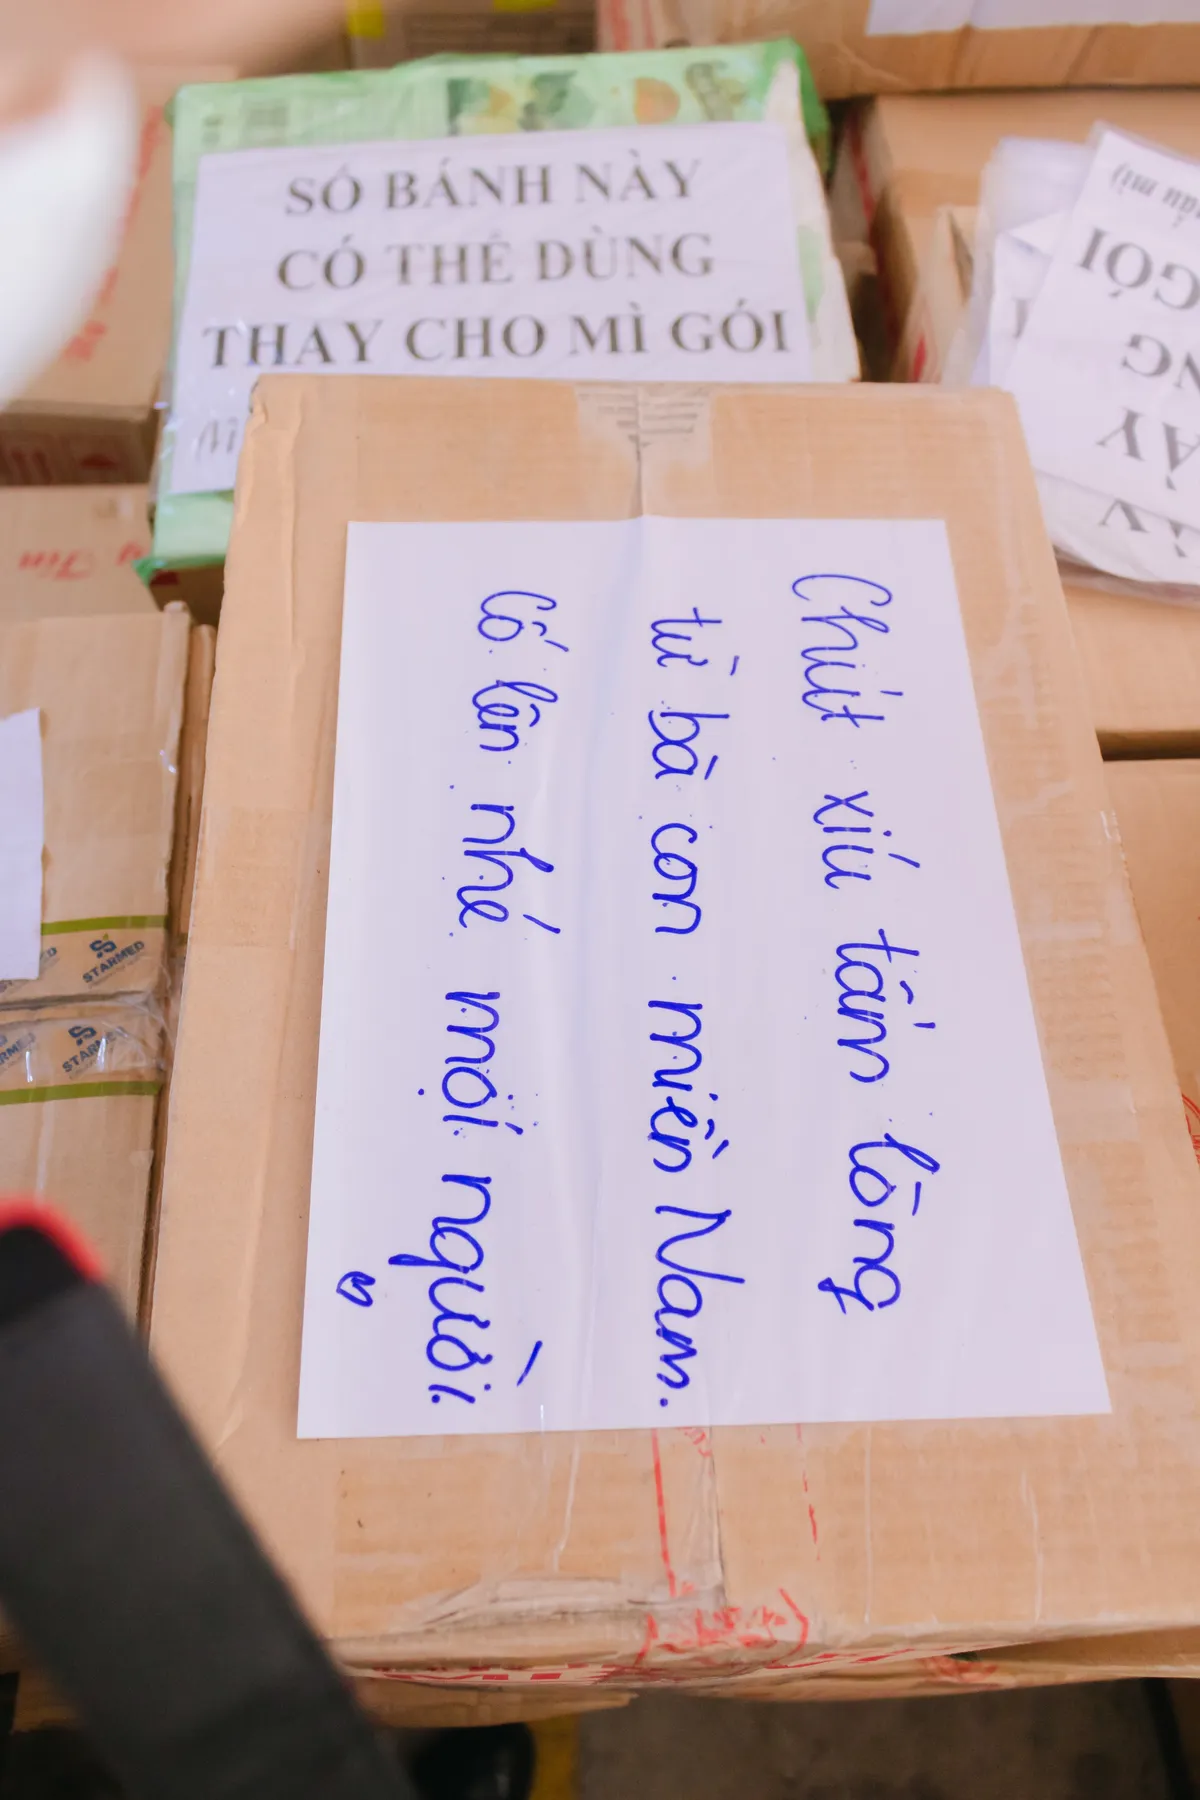 SỐ BÁNH NÀY
CÓ THỂ DÙNG
THAY CHO MÌ GÓI
Chút xíu tấm lòng
từ bà con miền Nam.
Cố lên nhé mọi người.
GÓI
STARMED
STARMED